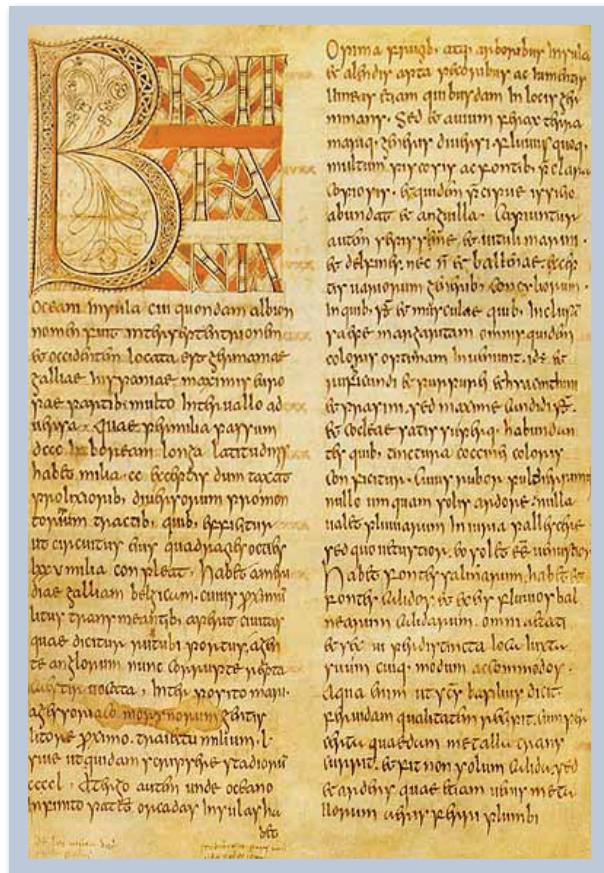 BRITTANIA
oceani insula cui quondam albion
nomen fuit inter septentrionem
et occidentem locata est germaniae
galliae hispaniae maximis euro
pae partib; multo interuallo ad
uersa. Quae per milia passuum
dccc in boream longa latitudinis
habet milia. cc exceptis dum taxat
prolixiorib; diuersorum promon
toriorum tractib; quib; efficitur
ut circuitus eius quadragies octies
lxxv milia conpleat. habet a meri
diae galliam belgicam. cuius proximū
litus transmeantib; aperit ciuitas
quae dicitur rutubi portus. a gen
te anglorum nunc corrupte repta
caestir uocata, interposito mari.
a gessoriaco morynorum gentis
litore proximo. traiectu milium. L.
siue ut quidam scripsere stadiorū
ccccl. A tergo autem unde oceano
infinito patet. orcadas insulas ha
bet
Opima frugib; atq; arboribus insula
et alendis apta pecoribus ac iumentis
uineas etiam quibusdam in locis ger
minans. Sed et auium ferax terra
mariq; generis diuersi. fluuiis quoq;
multum piscosis ac fontib; p̄clara
copiosis. et quidem p̄cipue issicio
abundat et anguilla. Capiuntur
autem saepissime et uituli marini.
et delfines. nec n̄ et ballenae. excep
tis uariorum generib; concyliorum.
in quib; s̄t et musculae quib; inclusā
saepe margaritam omnis quidem
coloris optimam inueniunt. id ē et
rubicundi et purpurei et hyacinthini
et prasini. sed maxime candidi. s̄t
et cocleae satis superq; habundan
tes quib; tinctura coccinei coloris
conficitur. cuius rubor pulcherrimus
nullo umquam solis ardore. nulla
ualet pluuiarum iniuria pallescere
sed quo uetustior. eo solet eē uenustior
habet fontes salinarum. habet et
fontes calidos et ex eis fluuios bal
nearum calidarum. omni aetati
et sexui per distincta loca iuxta
suum cuiq; modum accommodos.
Aqua enim ut scs basilius dicit.
feruidam qualitatem recipit. cum per
certa quaedam metalla trans
currit. et fit non solum calida. sed
et ardens quae etiam uenis meta
llorum aeris ferri plumbi